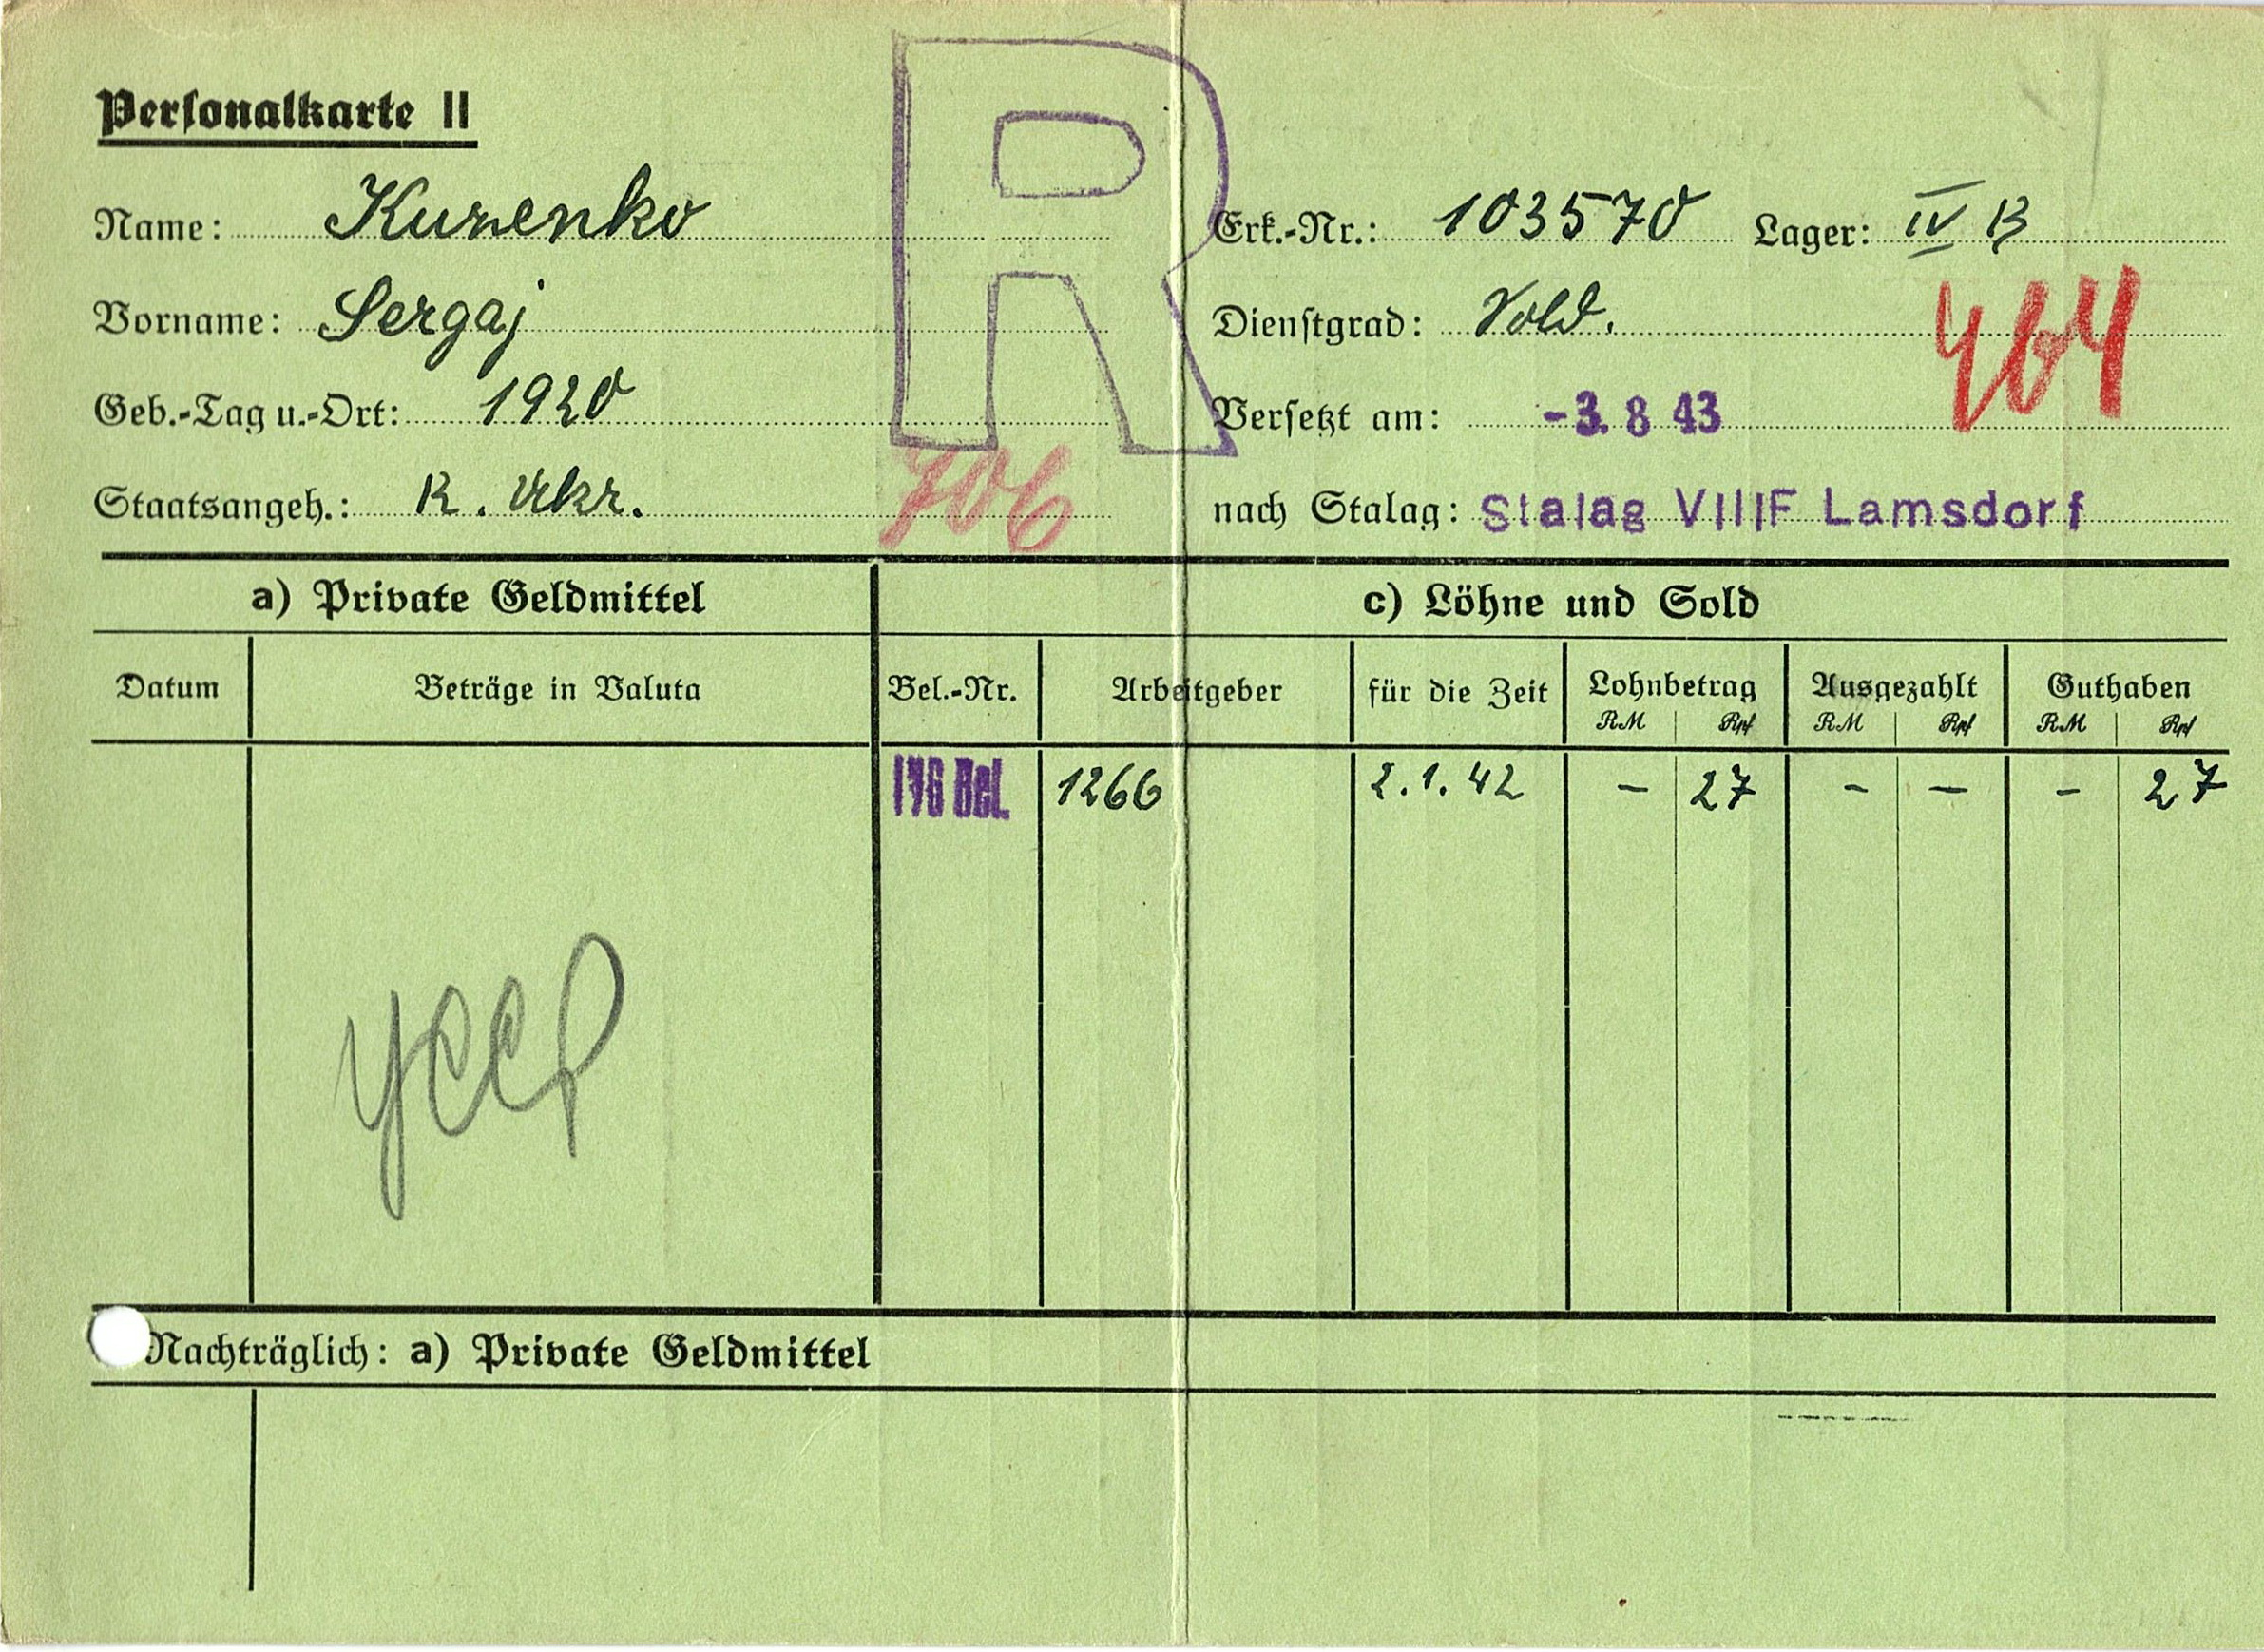 Personalkarte II
R
Name: Kurenko
Erk.-Nr.: 103570 Lager: IV B
Vorname: Sergaj
Dienstgrad: Sold.
464
Geb.-Tag u.-Ort: 1920
Versetzt am: -3. 8 43
Staatsangeh.: R. Ukr.
706
nach Stalag: Stalag VIIIF Lamsdorf
a) Private Geldmittel
c) Löhne und Sold
Datum Beträge in Valuta Bel.-Nr. Arbeitgeber für die Zeit Lohnbetrag Ausgezahlt Guthaben
RM Rpf RM Rpf RM Rpf
176 Bel. 1266 2.1.42 – 27 – – – 27
УССР
Nachträglich: a) Private Geldmittel